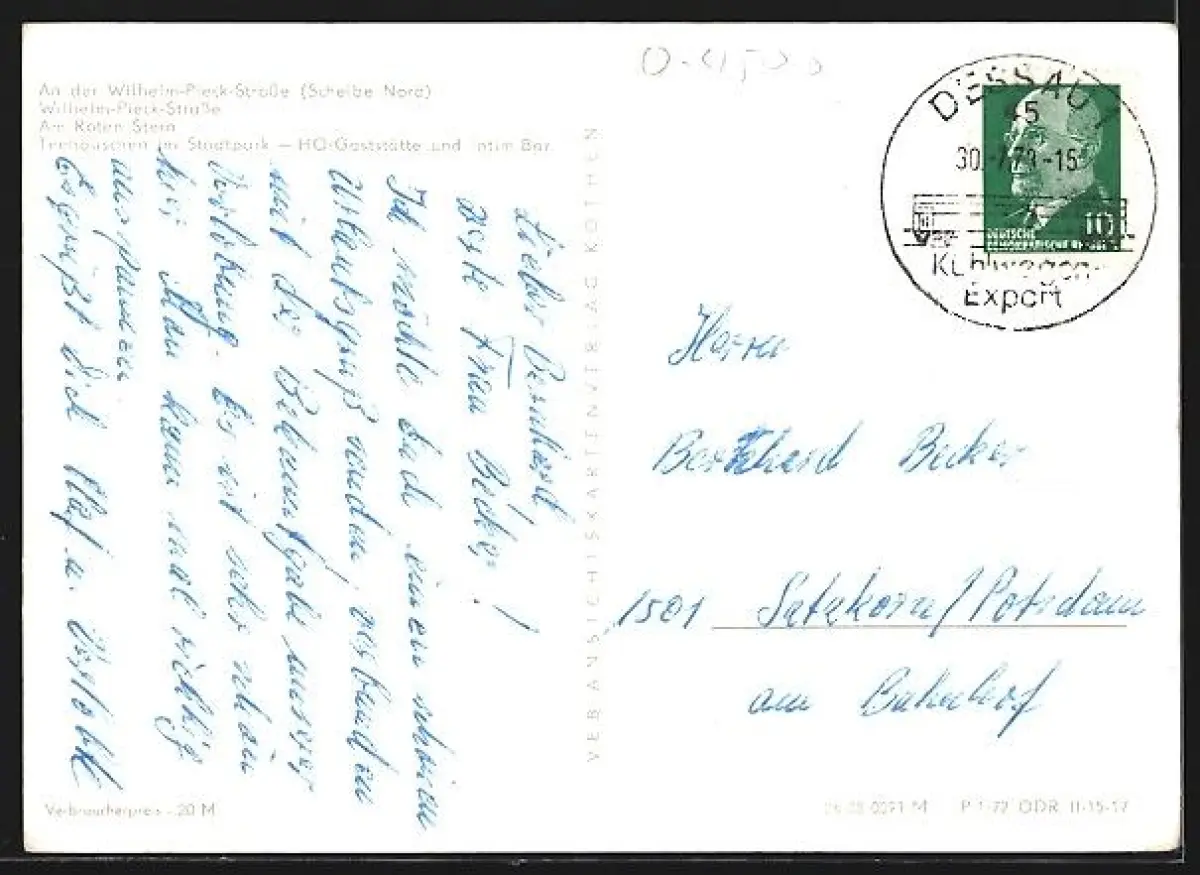 An der Wilhelm-Pieck-Straße (Scheibe Nord)
Wilhelm-Pieck-Straße
Am Roten Stern
Teehäuschen im Stadtpark — HO-Gaststätte und Intim Bar
Lieber Bernhard,
Frau Becker!
Ich möchte Euch einen schönen
Urlaubsgruß senden, verbunden
mit der Bekanntgabe unserer
Verlobung. Es ist sehr schön
hier. Man kann mal richtig
ausspannen
Es grüßt Dich u. Verlobte
Verbraucherpreis -,20 M
VEB ANSICHTSKARTENVERLAG KÖTHEN
DESSAU 1
45
30.-7.73.-15
Kühlwagen-
Export
10
DEUTSCHE
DEMOKRATISCHE REPUBLIK
Herrn
Bernhard Becker
1501 Satzkorn/Potsdam
am Bahnhof
P 1/72 DDR II-15-17